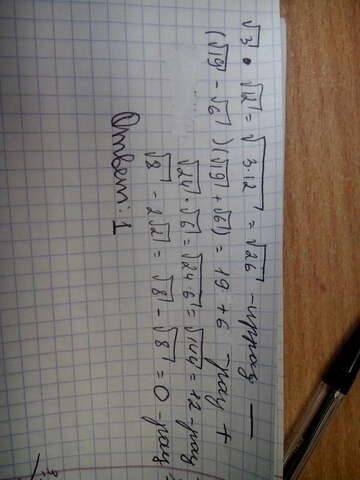 √3 · √12 = √3·12 = √26 - иррац —
(√19 - √6)(√19 + √6) = 19 + 6 - рац +
√24 · √6 = √24·6 = √144 = 12 - рац
√8 - 2√2 = √8 - √8 = 0 - рац
Ответ: 1